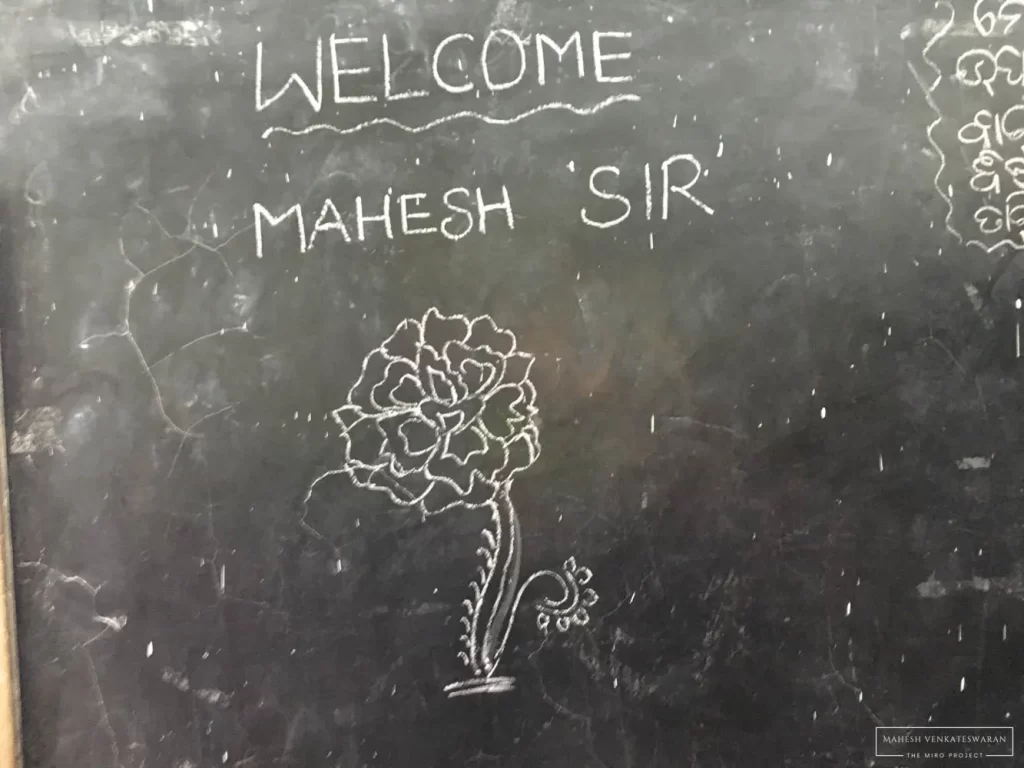 WELCOME
MAHESH 'SIR'
MAHESH VENKATESWARAN
THE MIRO PROJECT